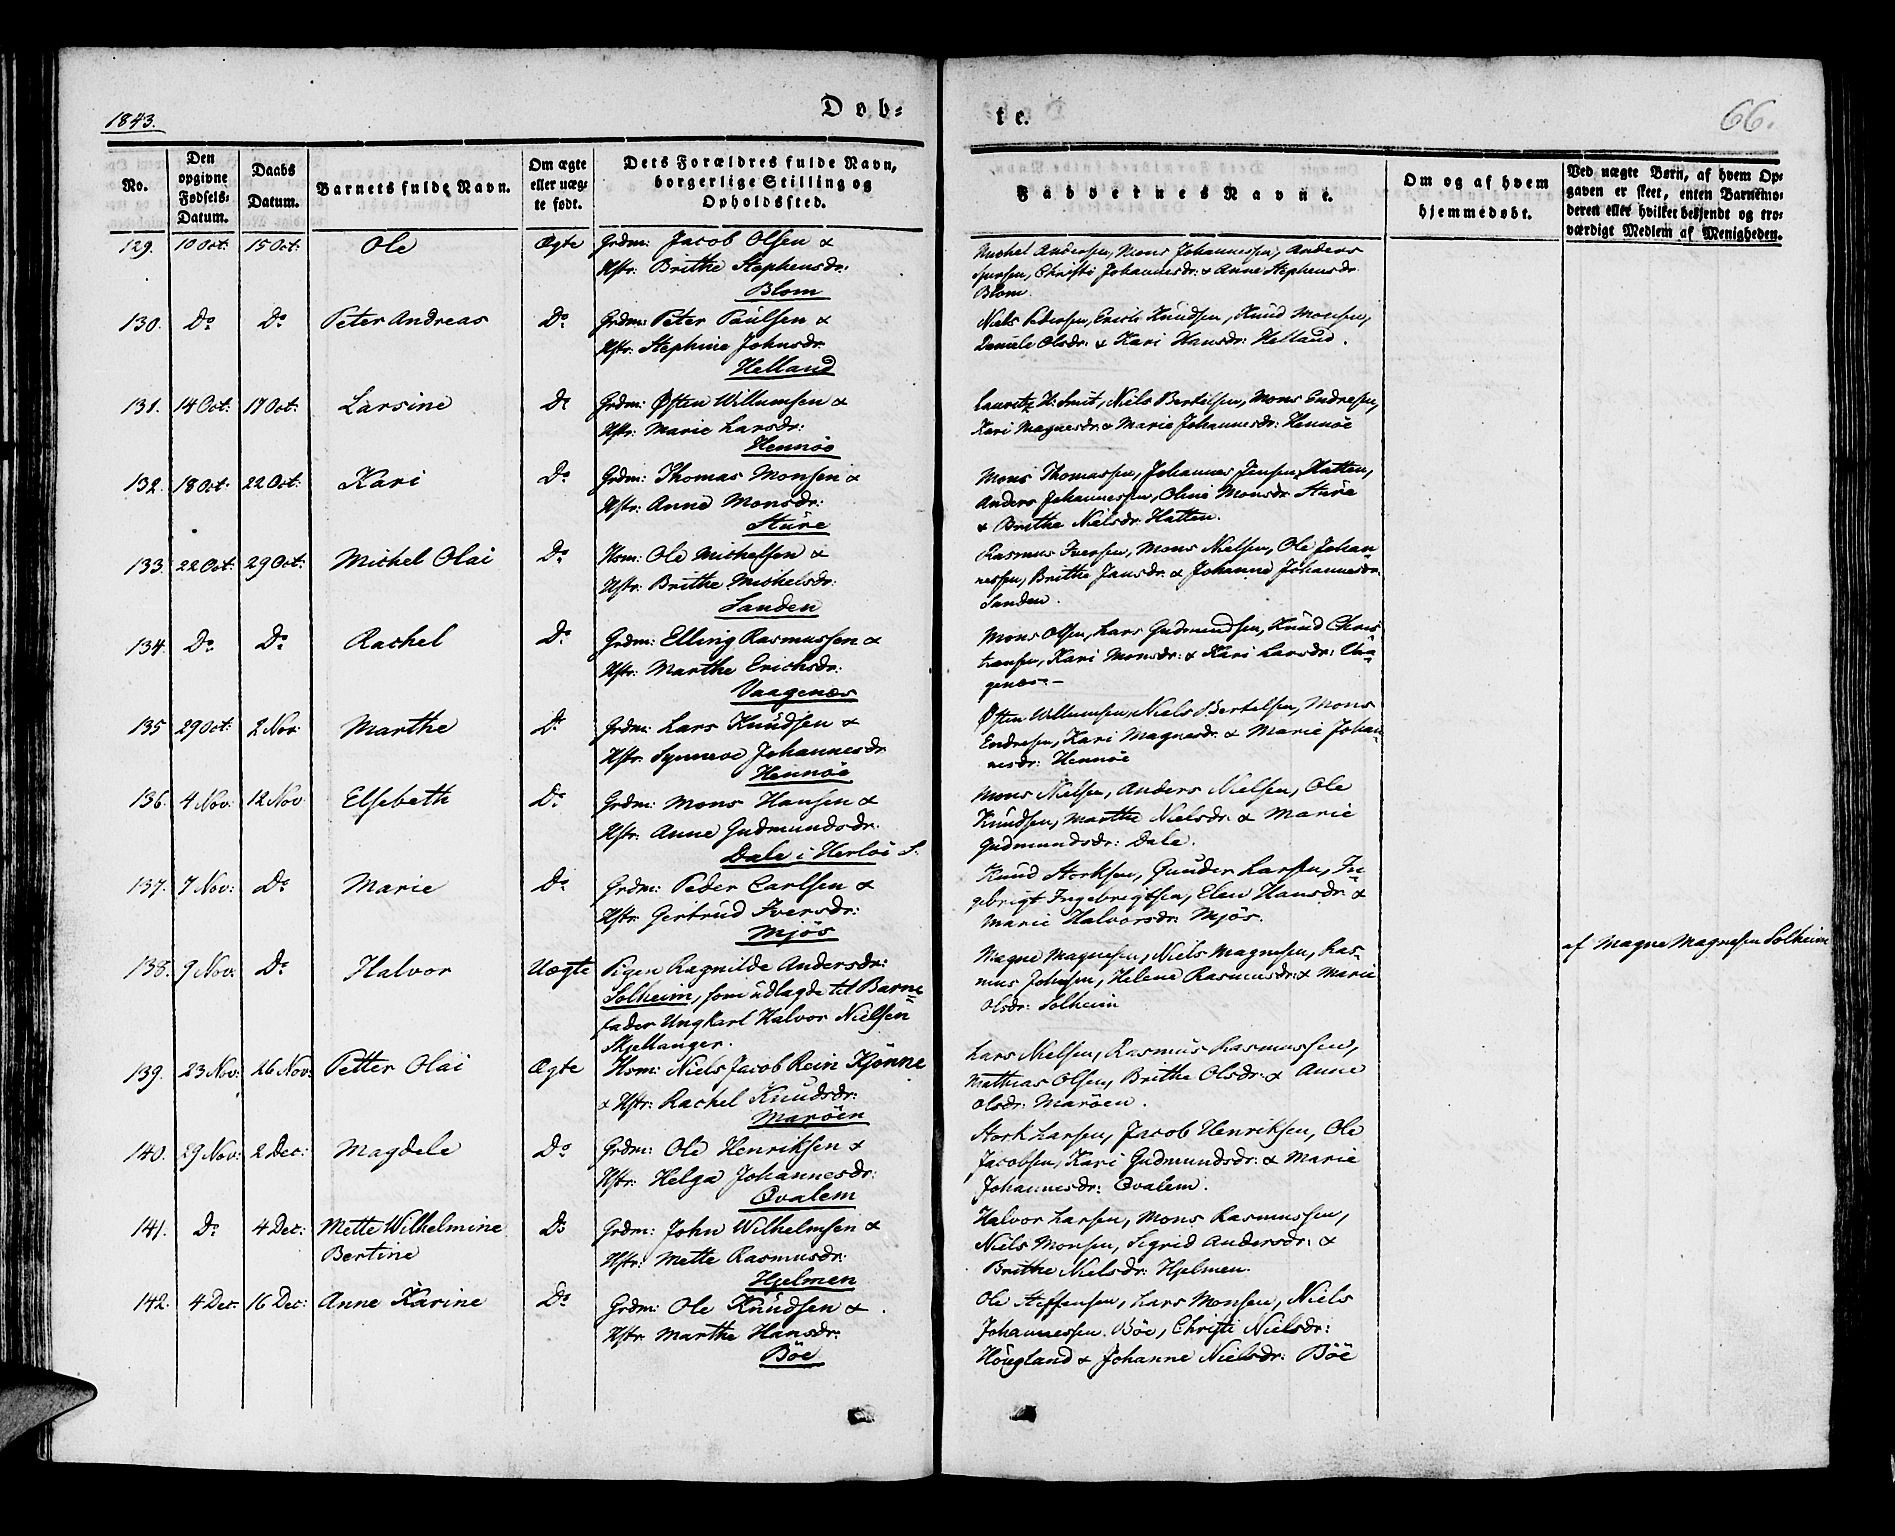 1843.
Døb=
te.
66.
No.
Den opgivne Fødsels-Datum.
Daabs Datum.
Barnets fulde Navn.
Om ægte eller uægte født.
Dets Forældres fulde Navn, borgerlige Stilling og Opholdssted.
Faddernes Navne.
Om og af hvem hjemmedøbt.
Ved uægte Børn, af hvem Opgaven er skeet, enten Barnemoderen eller hvilket bekjendt og troværdigt Medlem af Menigheden.
129. 10 Oct: 15 Oct: Ole Ægte Grdm: Jacob Olsen &
Hstr: Brithe Stephensdr:
Blom
Michel Andersen, Mons Johannessen, Anders
Christi Johannesdr: & Anne Stephensdr
Blom.
130. Do Do Peter Andreas Do Grdm: Peter Paulsen &
Hstr: Stephine Johnsdr.
Helland
Niels Pedersen, Erich Knudsen, Knud Monsen,
Daniele Olsdr: & Kari Hansdr: Helland.
131. 14 Oct: 17 Oct: Larsine Do Grdm: Østen Willumsen &
Hstr: Marie Larsdr:
Hennöe
Lauritz H: Smit, Niels Bertelsen, Mons Endresen,
Kari Magnesdr: & Marie Johannesdr: Hennöe
132. 18 Oct: 22 Oct: Kari Do Grdm: Thomas Monsen &
Hstr: Anne Monsdr:
Sture
Mons Thomassen, Johannes Jensen Hatten,
Anders Johannessen, Oline Monsdr Sture
& Brithe Nielsdr: Hatten.
133. 22 Oct: 29 Oct: Michel Olai Do Hsm: Ole Michelsen &
Hstr: Brithe Michelsdr:
Sanden
Rasmus Iversen, Mons Nielsen, Ole Johan=
nessen, Brithe Jansdr: & Johanne Johannesdr:
Sanden.
134. Do Do Rachel Do Grdm: Elling Rasmussen &
Hstr: Marthe Erichsdr:
Vaagenæs
Mons Olsen, Lars Gudmundsen, Knud Chris=
tiansen, Kari Monsdr: & Kari Larsdr: Vaa=
genæs.-
135 29 Oct: 2 Nov Marthe Do Grdm: Lars Knudsen &
Hstr: Synneve Johannesdr
Hennöe
Østen Willumsen, Niels Bertelsen, Mons
Endresen, Kari Magnesdr: & Marie Johan=
nesdr: Hennöe
136. 4 Nov: 12 Nov Elsebeth Do Grdm: Mons Hansen &
Hstr: Anne Gudmundsdr.
Dale i Herlöi S.
Mons Nielsen, Anders Nielsen, Ole
Knudsen, Marthe Nielsdr: & Marie
Gudmundsdr: Dale.
137. 7 Nov: Do Marie Do Grdm: Peder Carlsen &
Hstr: Gertrud Iversdr:
Mjös
Knud Storksen, Gunder Larsen, In=
gebrigt Ingebrigtsen, Elen Hansdr: &
Marie Halvorsdr: Mjös.
138. 9 Nov: Do Halvor Uægte Pigen Ragnilde Andersdr:
Solheim, som udlagde til Barne=
fader Ungkarl Halvor Nielsen
Skjellanger.
Magne Magnesen, Niels Magnesen, Ras=
mus Johnsen, Helene Rasmusdr: & Marie
Olsdr: Solheim
af Magne Magnesen Solheim
139. 23 Nov: 26 Nov: Petter Olai Ægte Hsm: Niels Jacob Rein Kjönne
& Hstr: Rachel Knudsdr:
Maröen
Lars Nielsen, Rasmus Rasmussen,
Mathias Olsen, Brithe Olsdr: & Anne
Olsdr: Maröen.
140. 29 Nov: 2 Dec: Magdele Do Grdm: Ole Henriksen &
Hstr: Helga Johannesdr:
Qvalem
Stork Larsen, Jacob Henriksen, Ole
Jacobsen, Kari Gudmundsdr: & Marie
Johannesdr: Qvalem.
141. Do 4 Dec: Mette Wilhelmine Do Grdm: John Wilhelmsen &
Bertine Hstr: Mette Rasmusdr:
Hjelmen
Halvor Larsen, Mons Rasmussen,
Niels Monsen, Sigrid Andersdr: &
Brithe Nielsdr: Hjelmen.
142. 4 Dec. 16 Dec: Anne Karine Do Grdm: Ole Knudsen &
Hstr Marthe Hansdr:
Böe
Ole Steffensen, Lars Monsen, Niels
Johannessen. Böe, Christi Nielsdr:
Hougland & Johanne Nielsdr: Böe